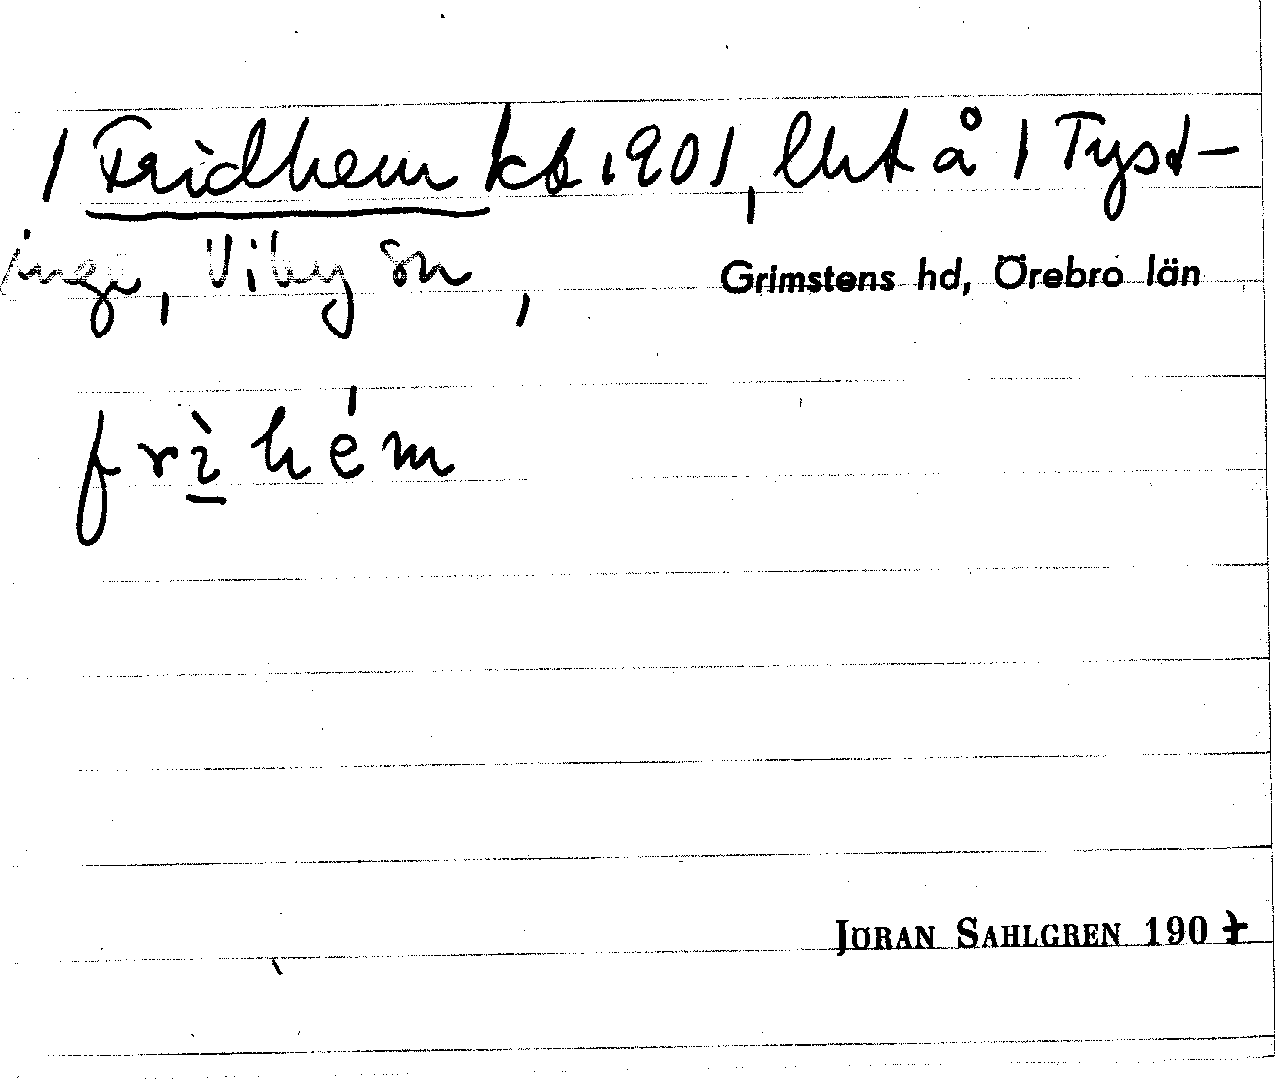 / Fridhem kb 1901, lht å / Tyst-
inge, Viby sn, Grimstens hd, Örebro län
frìhém
JÖRAN SAHLGREN 1907